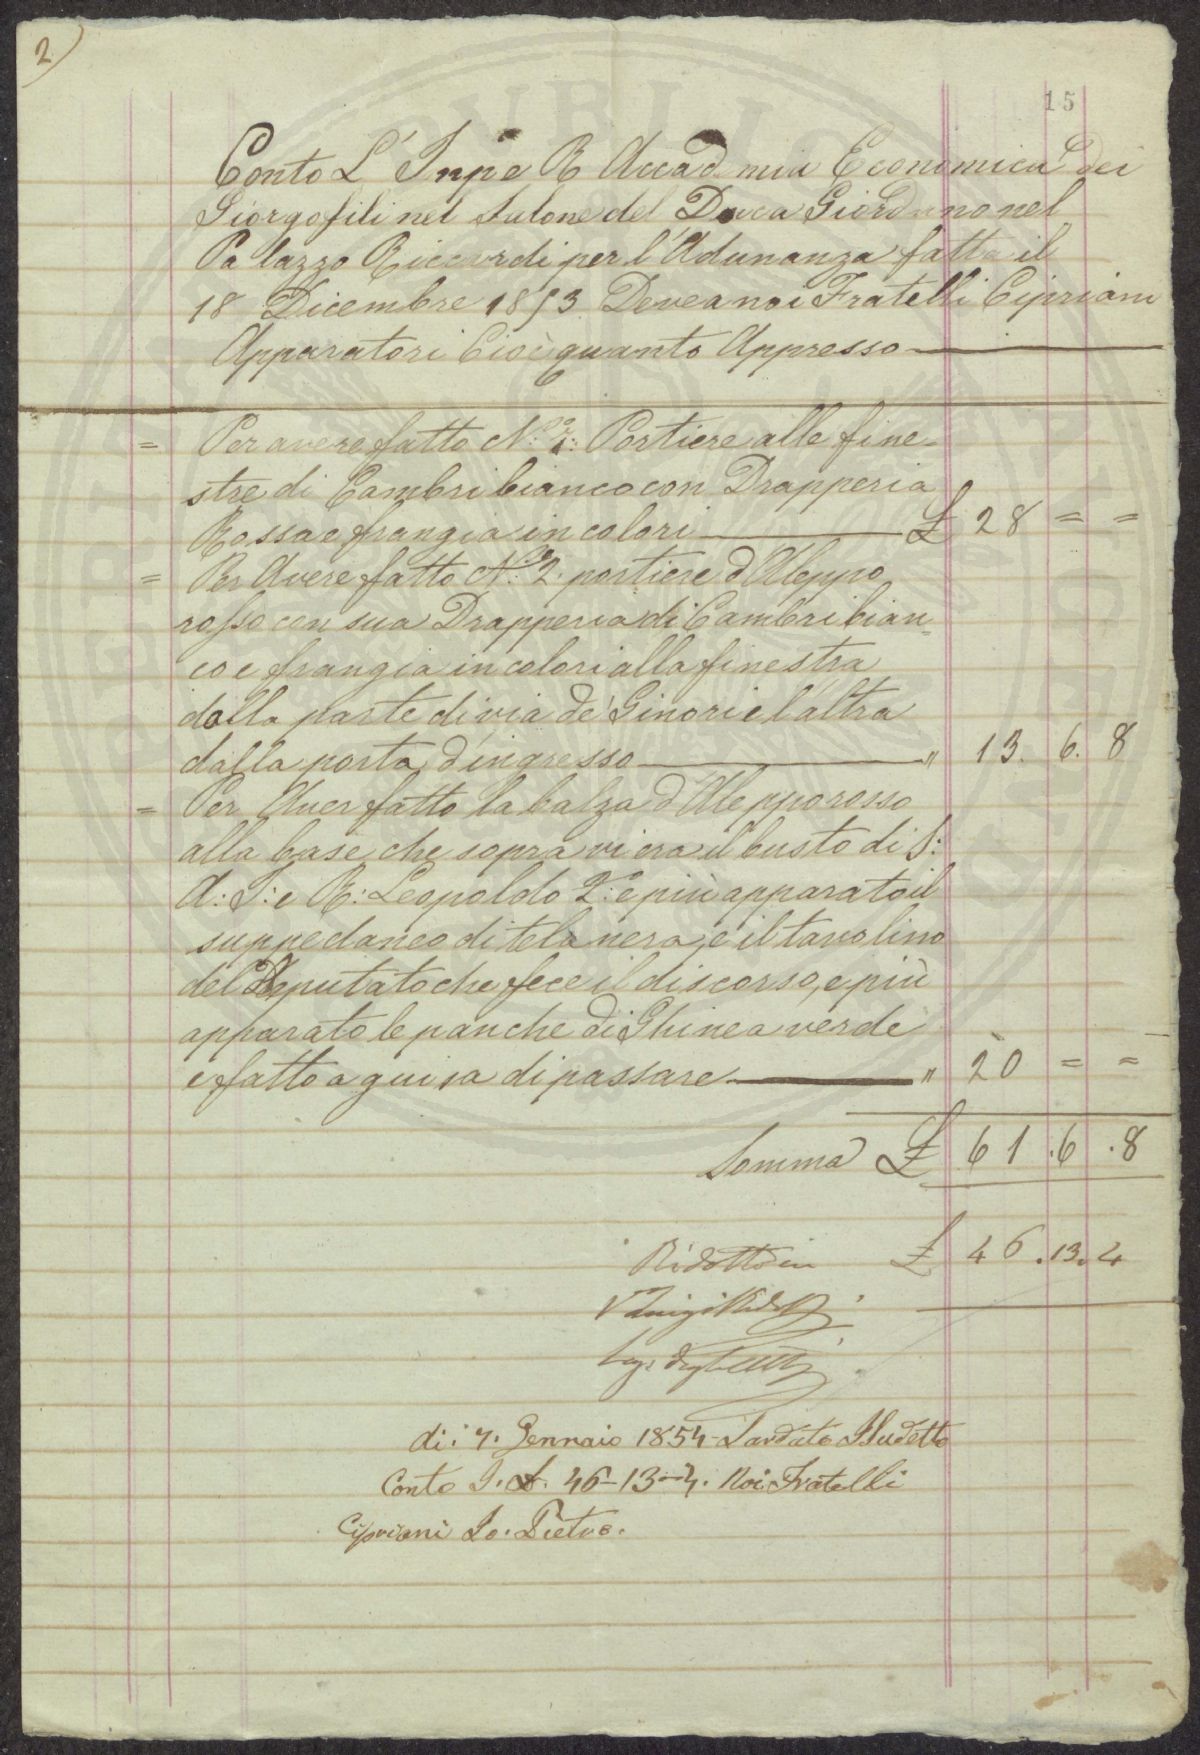 2
15
Conto L' Inpe R Accad mia Economica dei
Giorgofili nel Salone del Duca Giordano nel
Palazzo Riccardi per l'Adunanza fatta il
18 Dicembre 1853 Deve a noi Fratelli Cipriani
Apparatori Cioè quanto Appresso
= Per avere fatto N: Portiere alle fine-
stre di Cambri bianco con Drapperia
Rossa e frangia in colori £ 28 = =
= Per Avere fatto N: 2. portiere d'Aleppo
rosso con sua Drapperia di Cambri bian=
co e frangia in colori alla finestra
dalla parte di via de' Ginori e l'altra
dalla porta d'ingresso " 13. 6. 8
= Per Aver fatto la balza d'Aleppo rosso
alla base che sopra vi era il busto di S:
A: I: e R: Leopoldo 2: e più apparato il
suppedaneo di tela nera, e il tavolino
del Deputato che fece il discorso, e più
apparato le panche di Ghinea verde
e fatto a guisa di passare " 20 = =
Somma £ 61 .6 .8
Ridotto in £ 46 .13. 4
di: 7. Gennaio 1854 Saldato Il sudetto
Conto I. £. 46-13-4. Noi Fratelli
Cipriani Io. Pietro.